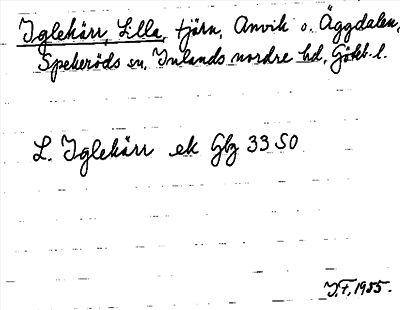 Iglekärr, Lilla, tjärn, Anvik o. Äggdalen,
Spekeröds sn, Inlands nordre hd, Göteb. l.
L. Iglekärr ek Gbg 33 SO
I.F. 1955.